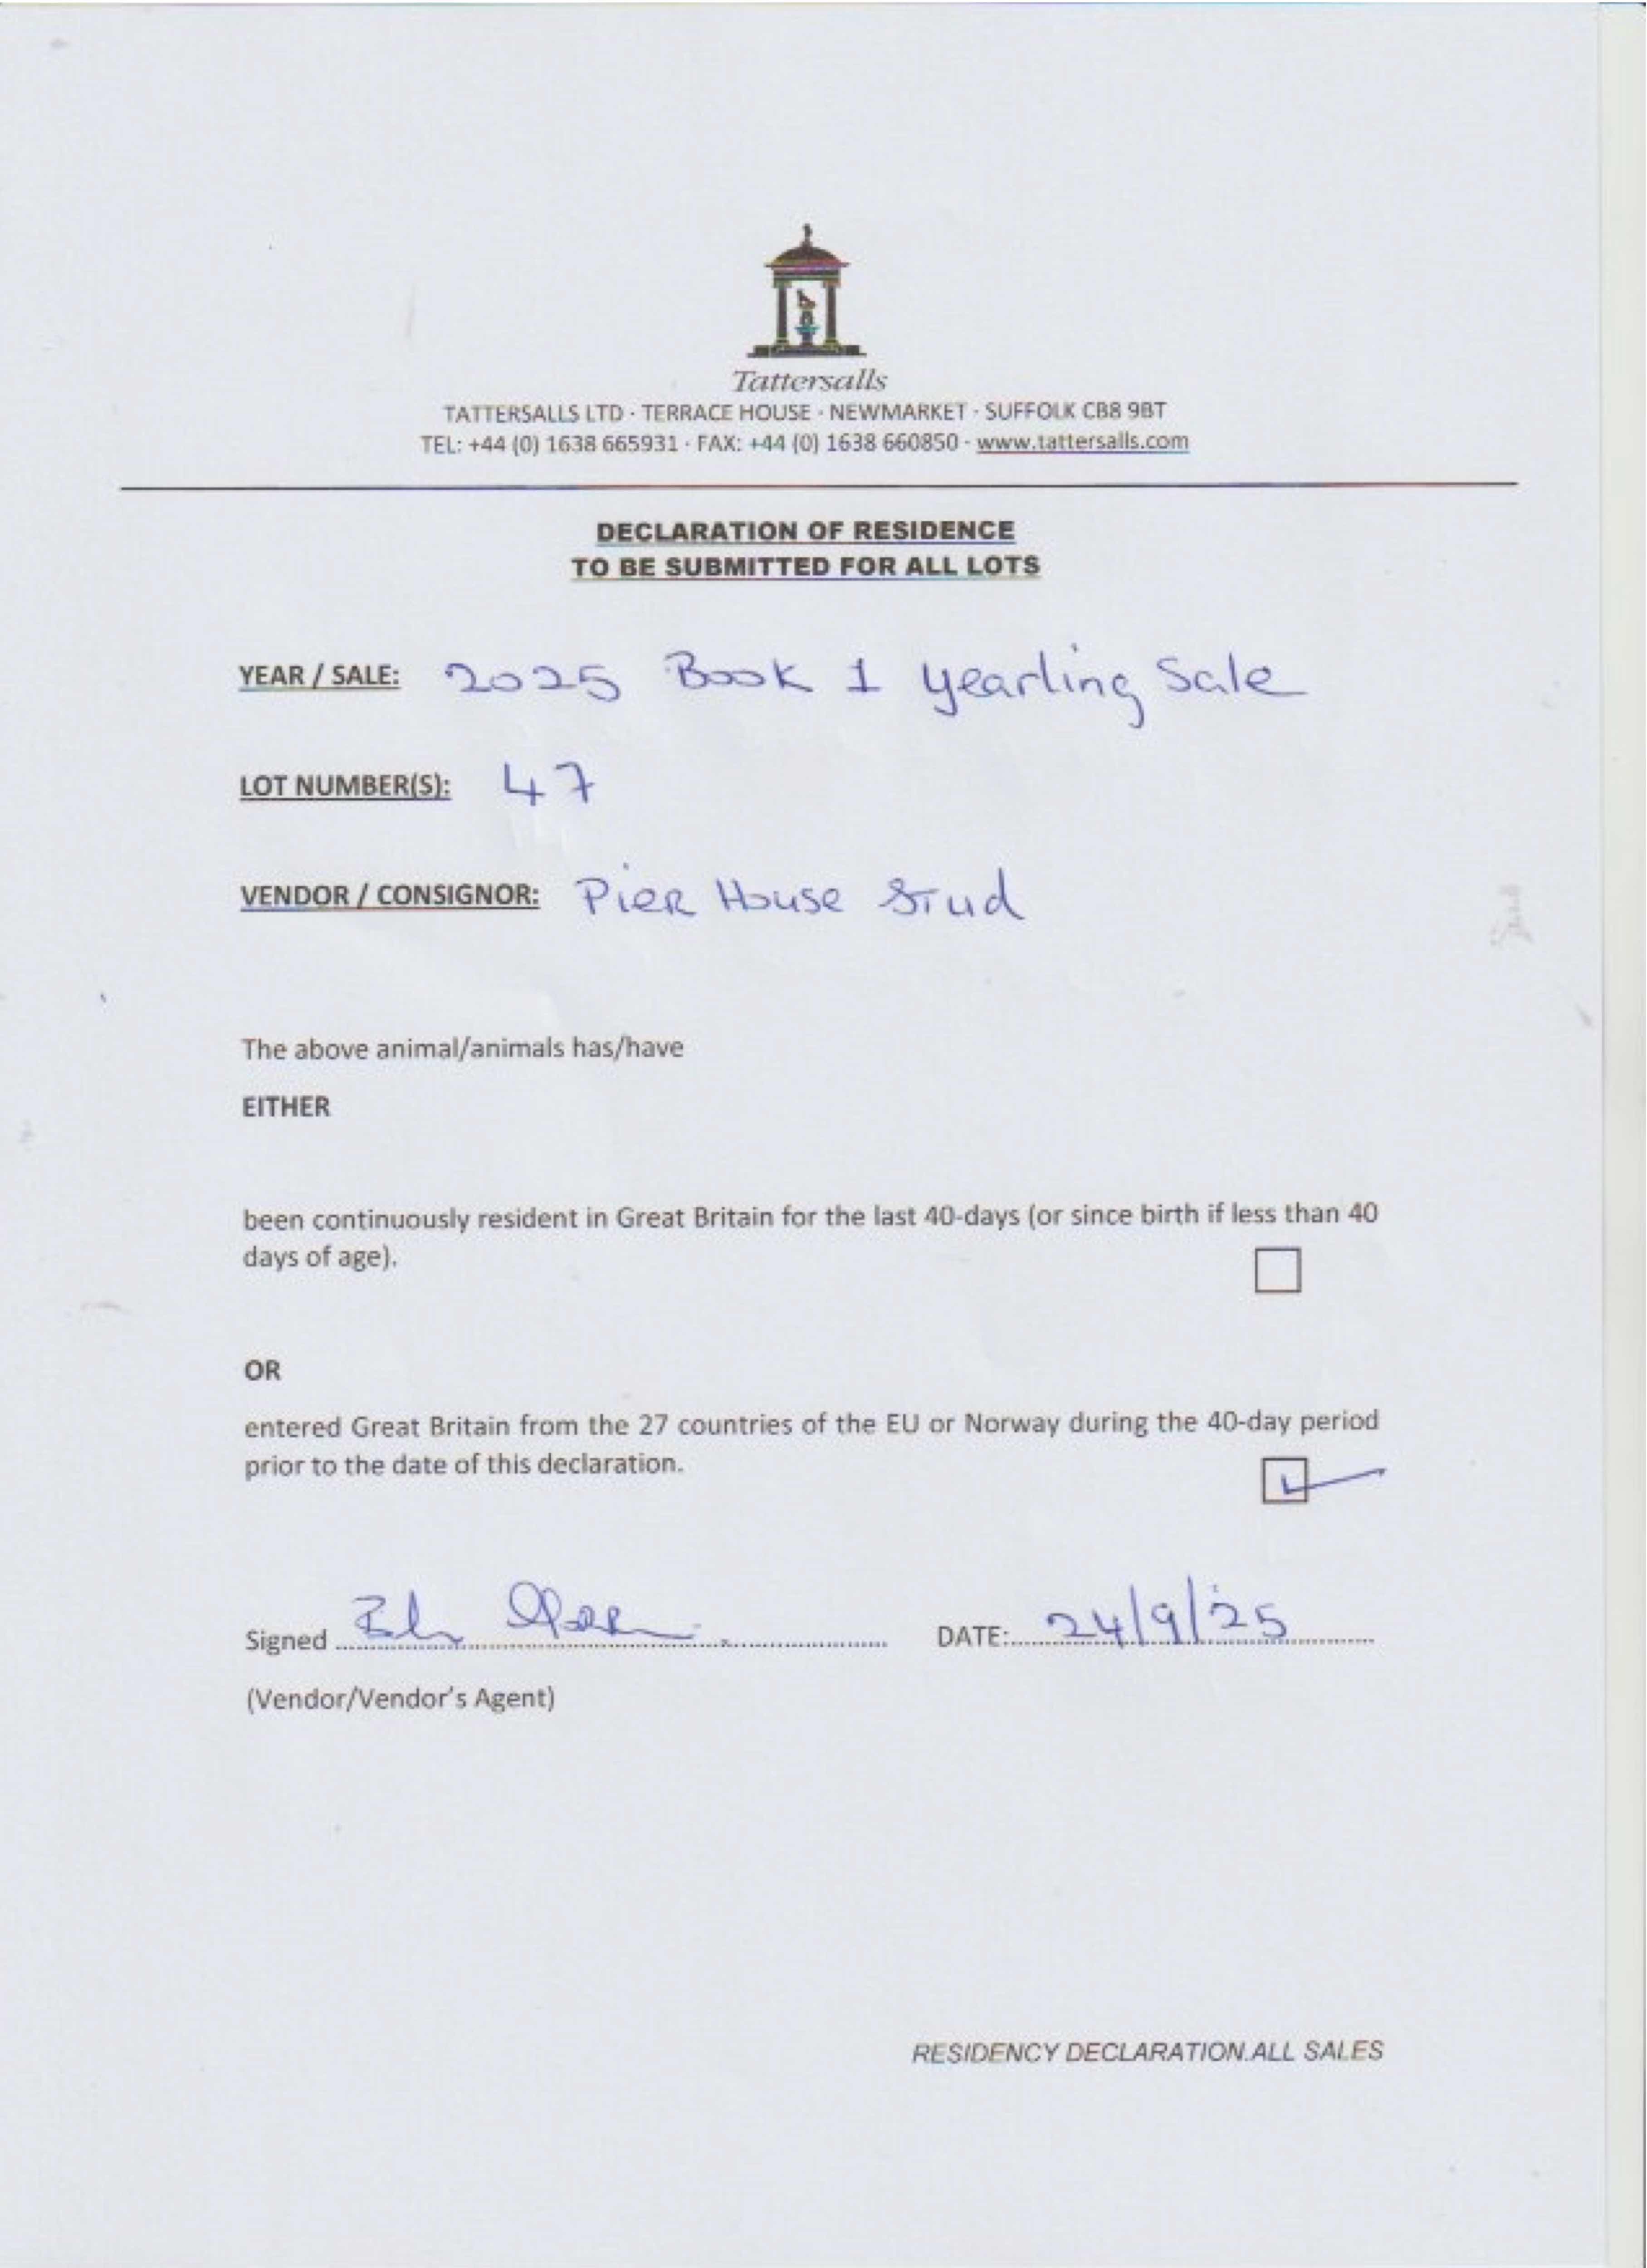 Tattersalls
TATTERSALLS LTD · TERRACE HOUSE · NEWMARKET · SUFFOLK CB8 9BT
TEL: +44 (0) 1638 665931 · FAX: +44 (0) 1638 660850 · www.tattersalls.com
DECLARATION OF RESIDENCE
TO BE SUBMITTED FOR ALL LOTS
YEAR / SALE: 2025 Book 1 yearling Sale
LOT NUMBER(S): 47
VENDOR / CONSIGNOR: Pier House Stud
The above animal/animals has/have
EITHER
been continuously resident in Great Britain for the last 40-days (or since birth if less than 40
days of age).
OR
entered Great Britain from the 27 countries of the EU or Norway during the 40-day period
prior to the date of this declaration.
Signed DATE: 24/9/25
(Vendor/Vendor's Agent)
RESIDENCY DECLARATION.ALL SALES